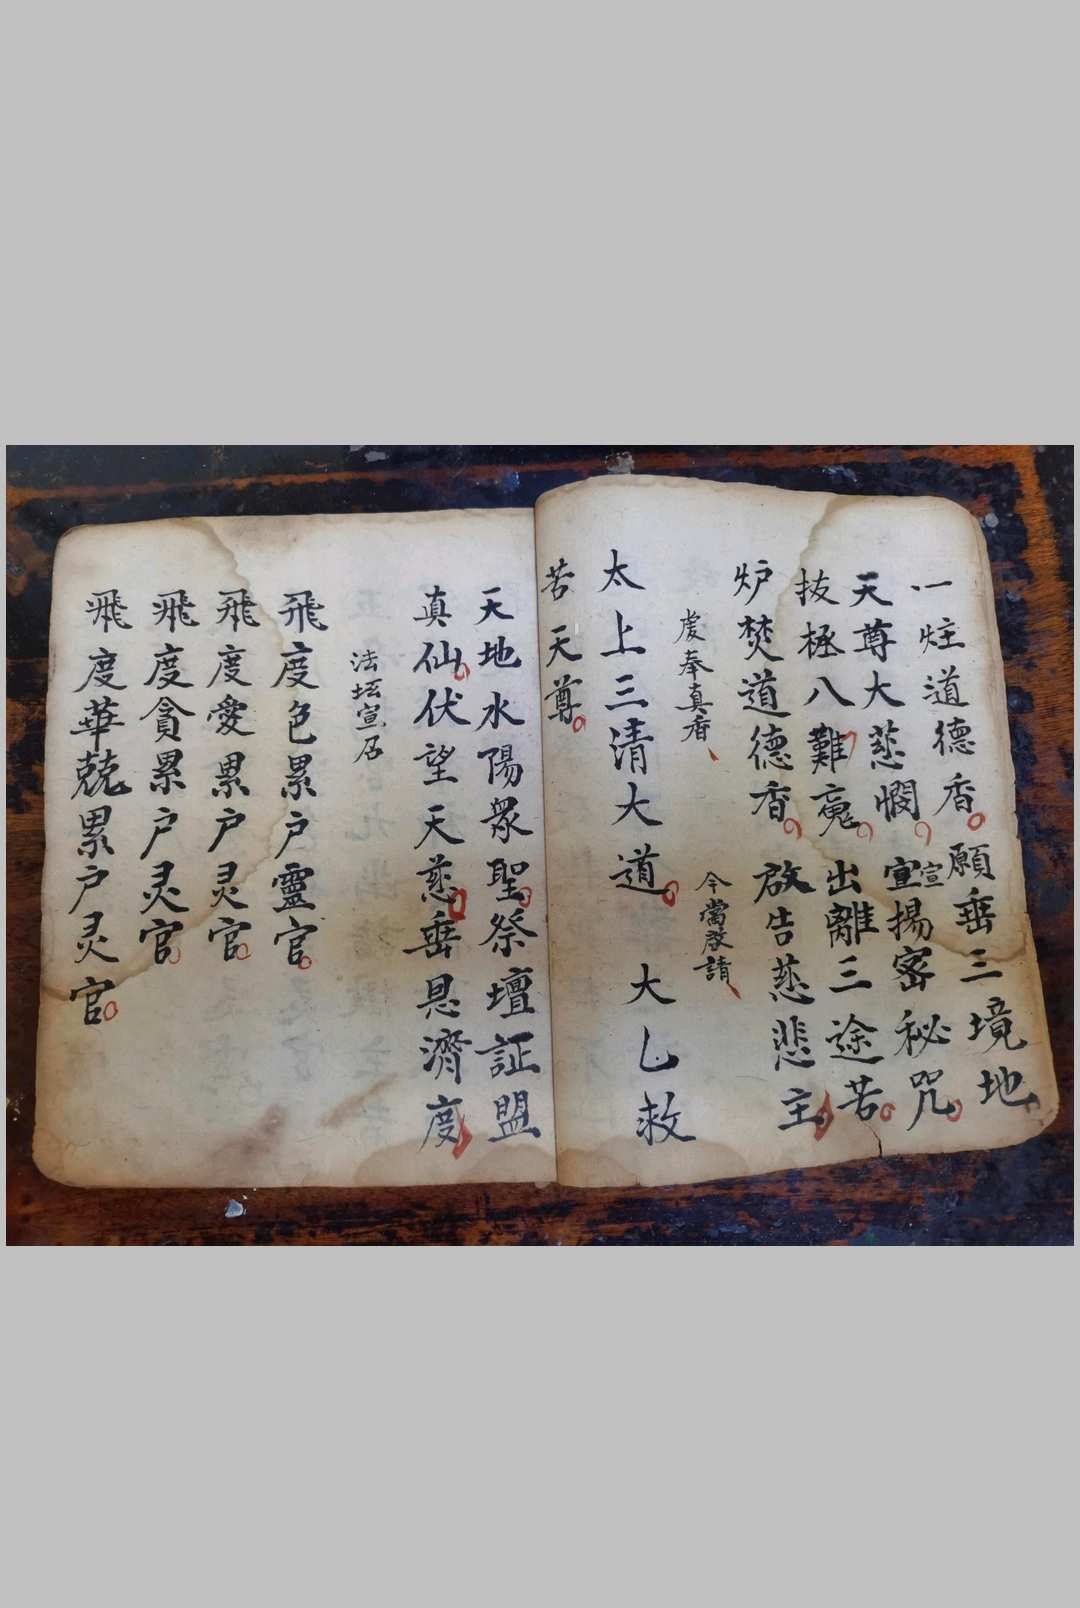 一炷道德香願垂三境地
天尊大慈憫宣宣揚密秘咒
拔極八難䰟出離三途苦
炉焚道德香啟告慈悲主
虔奉真香　今當啓請
太上三清大道　大乚救
苦天尊
天地水陽眾聖祭壇証盟
真仙伏望天慈垂恩濟度
法坛宣
飛度色累户靈官
飛度愛累户灵官
飛度貪累户灵官
飛度華兢累户灵官